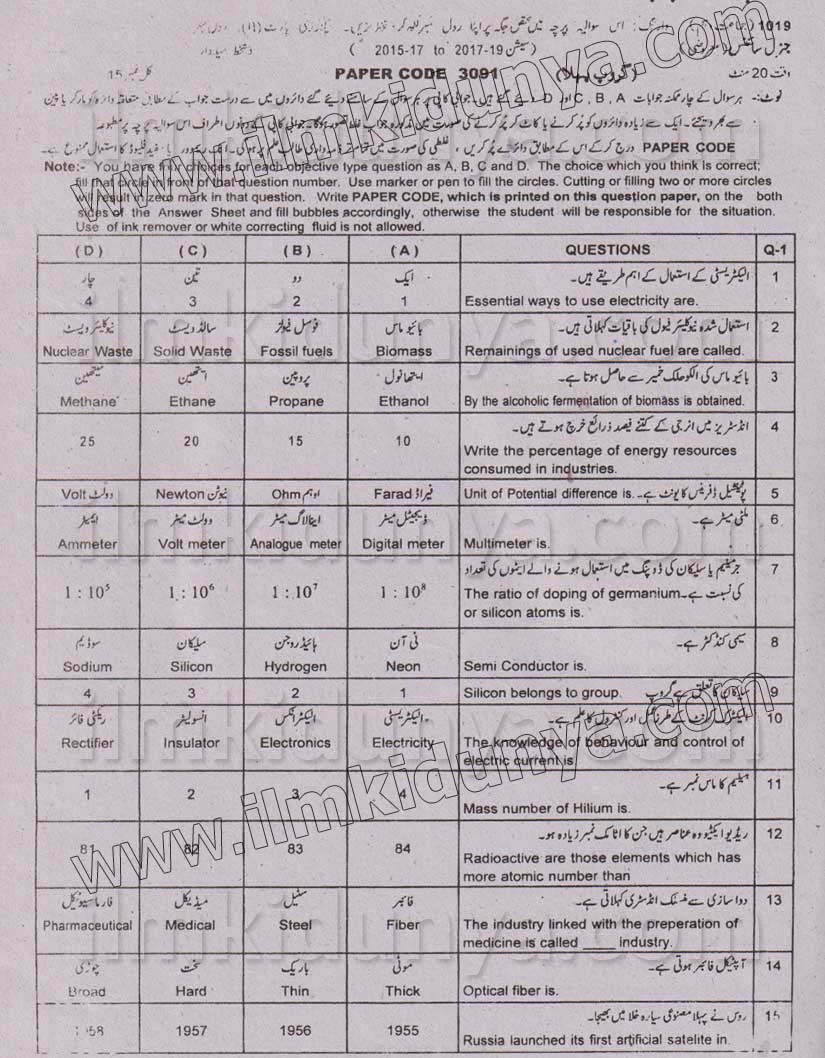 1019
اس سوالیہ پرچہ میں مختص جگہ پر اپنا رول نمبر
(سیشن 2015-17 to 2017-19)
وقت 20 منٹ (گروپ پہلا) PAPER CODE 3091 کل نمبر 15
نوٹ:- ہر سوال کے چار ممکنہ جوابات A, B, C اور D دیئے گئے ہیں۔ جوابی کاپی پر ہر سوال کے سامنے دیئے گئے دائروں میں سے درست جواب کے مطابق متعلقہ دائرہ کو مارکر یا پین
سے بھر دیجئے۔ ایک سے زیادہ دائروں کو پُر کرنے یا کاٹ کر پُر کرنے کی صورت میں مذکورہ جواب غلط تصور ہو گا۔ جوابی کاپی کے دونوں اطراف اس سوالیہ پرچہ پر مطبوعہ
PAPER CODE درج کر کے اس کے مطابق دائرے پُر کریں، غلطی کی صورت میں تمام تر ذمہ داری طالب علم پر ہو گی۔ انک ریموور یا سفید فلیوڈ کا استعمال ممنوع ہے۔
Note:- You have four choices for each objective type question as A, B, C and D. The choice which you think is correct;
fill that circle in front of that question number. Use marker or pen to fill the circles. Cutting or filling two or more circles
will result in zero mark in that question. Write PAPER CODE, which is printed on this question paper, on the both
sides of the Answer Sheet and fill bubbles accordingly, otherwise the student will be responsible for the situation.
Use of ink remover or white correcting fluid is not allowed.
(D) (C) (B) (A) QUESTIONS Q-1
چار تین دو ایک الیکٹریسٹی کے استعمال کے اہم طریقے ہیں۔ 1
4 3 2 1 Essential ways to use electricity are.
نیوکلیئر ویسٹ سالڈ ویسٹ فوسل فیولز بائیو ماس استعمال شدہ نیوکلیئر فیول کی باقیات کہلاتی ہیں۔ 2
Nuclear Waste Solid Waste Fossil fuels Biomass Remainings of used nuclear fuel are called.
میتھین ایتھین پروپین ایتھانول بائیو ماس کی الکوحلک خمیر سے حاصل ہوتا ہے۔ 3
Methane Ethane Propane Ethanol By the alcoholic fermentation of biomass is obtained.
انڈسٹریز میں انرجی کے کتنے فیصد ذرائع خرچ ہوتے ہیں۔ 4
25 20 15 10 Write the percentage of energy resources
consumed in industries.
Volt وولٹ Newton نیوٹن Ohm اوہم Farad فیراڈ Unit of Potential difference is. پوٹینشل ڈفرینس کا یونٹ ہے۔ 5
ایمیٹر وولٹ میٹر اینالاگ میٹر ڈیجیٹل میٹر ملٹی میٹر ہے۔ 6
Ammeter Volt meter Analogue meter Digital meter Multimeter is.
جرمینیم یا سلیکان کی ڈوپنگ میں استعمال ہونے والے ایٹموں کی تعداد 7
1 : 10⁵ 1 : 10⁶ 1 : 10⁷ 1 : 10⁸ The ratio of doping of germanium کی نسبت ہے۔
or silicon atoms is.
سوڈیم سیلیکان ہائیڈروجن نی آن سیمی کنڈکٹر ہے۔ 8
Sodium Silicon Hydrogen Neon Semi Conductor is.
4 3 2 1 Silicon belongs to group. سلیکان کا تعلق ہے گروپ 9
ریکٹی فائر انسولیٹر الیکٹرانکس الیکٹریسٹی الیکٹرک کرنٹ کے طرز عمل اور کنٹرول کا علم ہے۔ 10
Rectifier Insulator Electronics Electricity The knowledge of behaviour and control of
electric current is
ہیلیم کا ماس نمبر ہے۔ 11
1 2 3 4 Mass number of Hilium is.
ریڈیو ایکٹیو وہ عناصر ہیں جن کا اٹامک نمبر زیادہ ہو۔ 12
81 82 83 84 Radioactive are those elements which has
more atomic number than
فارماسیوٹیکل میڈیکل سٹیل فائبر دوا سازی سے منسلک انڈسٹری کہلاتی ہے۔ 13
Pharmaceutical Medical Steel Fiber The industry linked with the preperation of
medicine is called ____ industry.
چوڑی سخت باریک موٹی آپٹیکل فائبر ہوتی ہے۔ 14
Broad Hard Thin Thick Optical fiber is.
روس نے پہلا مصنوعی سیارہ خلا میں بھیجا۔ 15
1958 1957 1956 1955 Russia launched its first artificial satelite in.
www.ilmkidunya.com
www.ilmkidunya.com
ilmkidunya.com